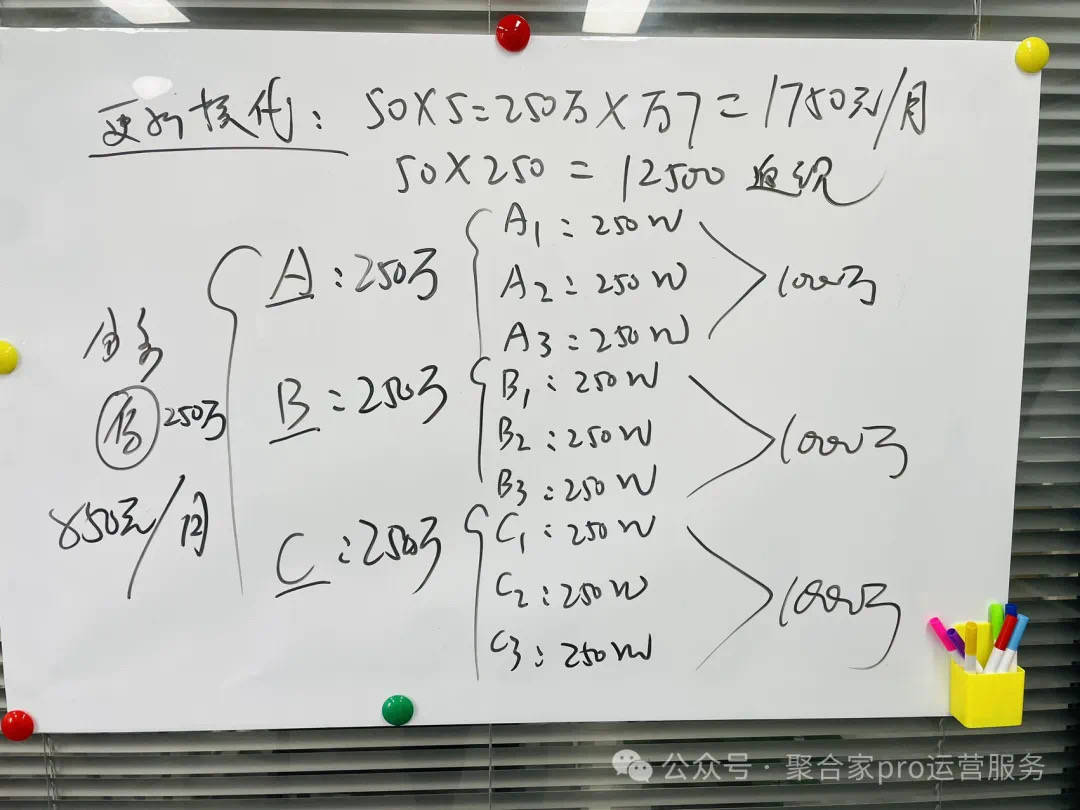 更新换代: 50X5=250万X万7=1750元/月
50X250=12500 返现
A:250万
A1:250W
A2:250W
A3:250W
1000万
任务
250万
850元/月
B:250万
B1:250W
B2:250W
B3:250W
1000万
C:250万
C1:250W
C2:250W
C3:250W
1000万
公众号·聚合家pro运营服务